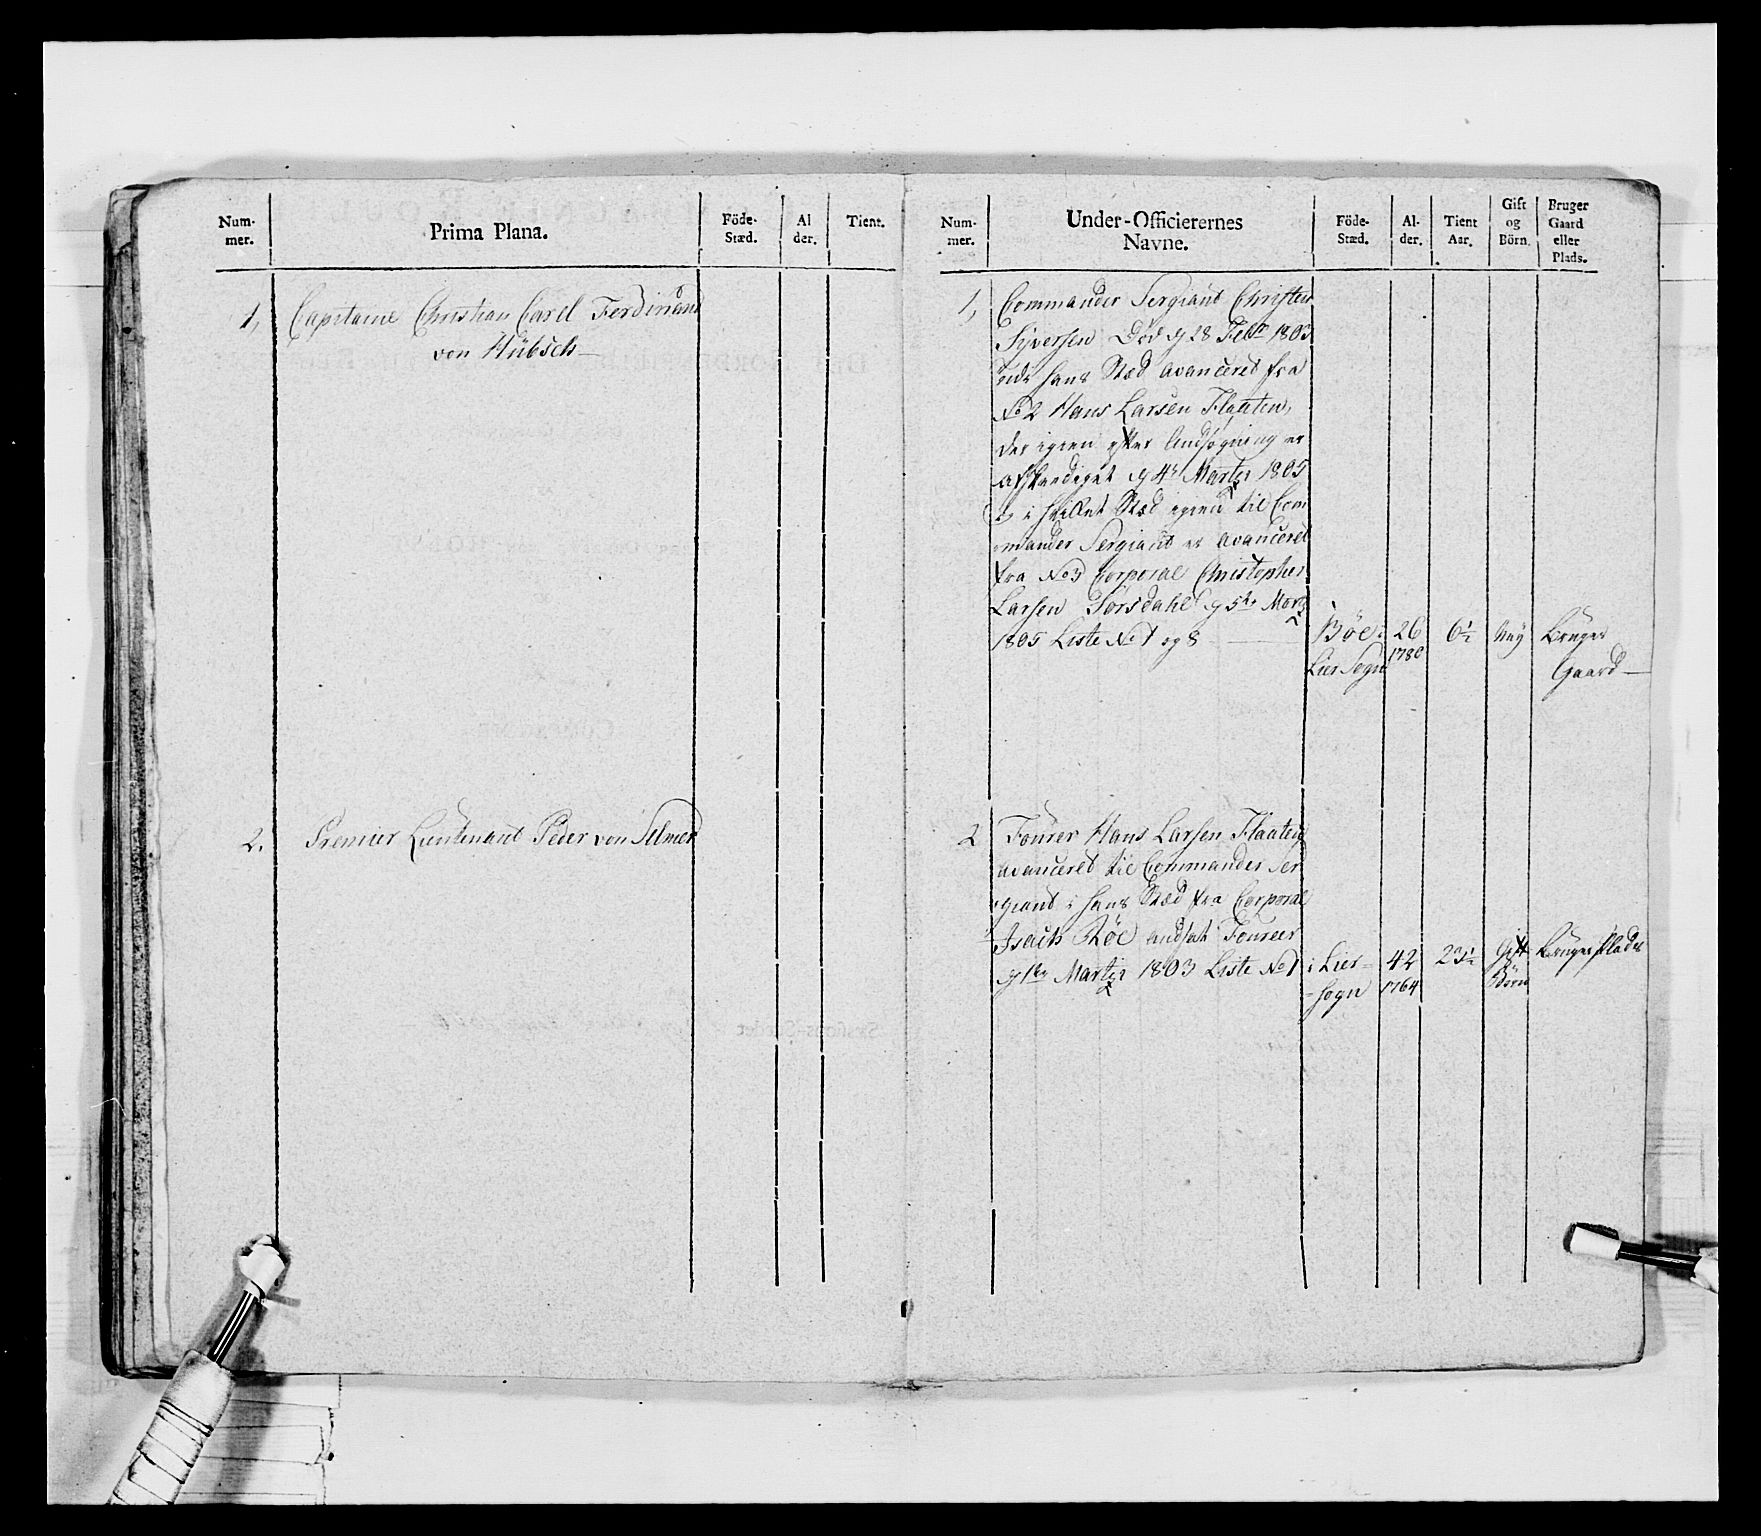 Num-
mer.
Prima Plana.
Föde-
Stæd.
Al
der.
Tient.
1,
Capitaine Christian Carel Ferdinand
von Hübsch
2.
Premier Lieutenant Peder von Selmer
Num-
mer.
Under-Officierernes
Navne.
Föde-
Stæd.
Al-
der.
Tient
Aar.
Gift
og
Börn.
Bruger
Gaard
eller
Plads.
1,
Commander Sergiant Christen
Syversen Död d 28 Febr 1803
hans Stæd avanceret fra
No 2 Hans Larsen Flaaten,
der igien efter Ansögning er
afskediget d 4de Marty 1805
i hvilket Stæd igien til Com
mander Sergiant er avanceret
fra No 3 Corporal Christopher
Larsen Torsdahl d 5te Marty
1805 Liste No 1 og 8
Böe i
Lier Sogn
26
1780
6½
Ney
Bruger
Gaard
2
Fourer Hans Larsen Flaaten
avanceret til Commander Ser
giant i hans Stæd fra Corporal
Isach Röe andsat Fourer
d 1te Marty 1803 Liste No 1
i Lier
Sogn
42
1764
23½
Gift
Börn
Bruger Plads